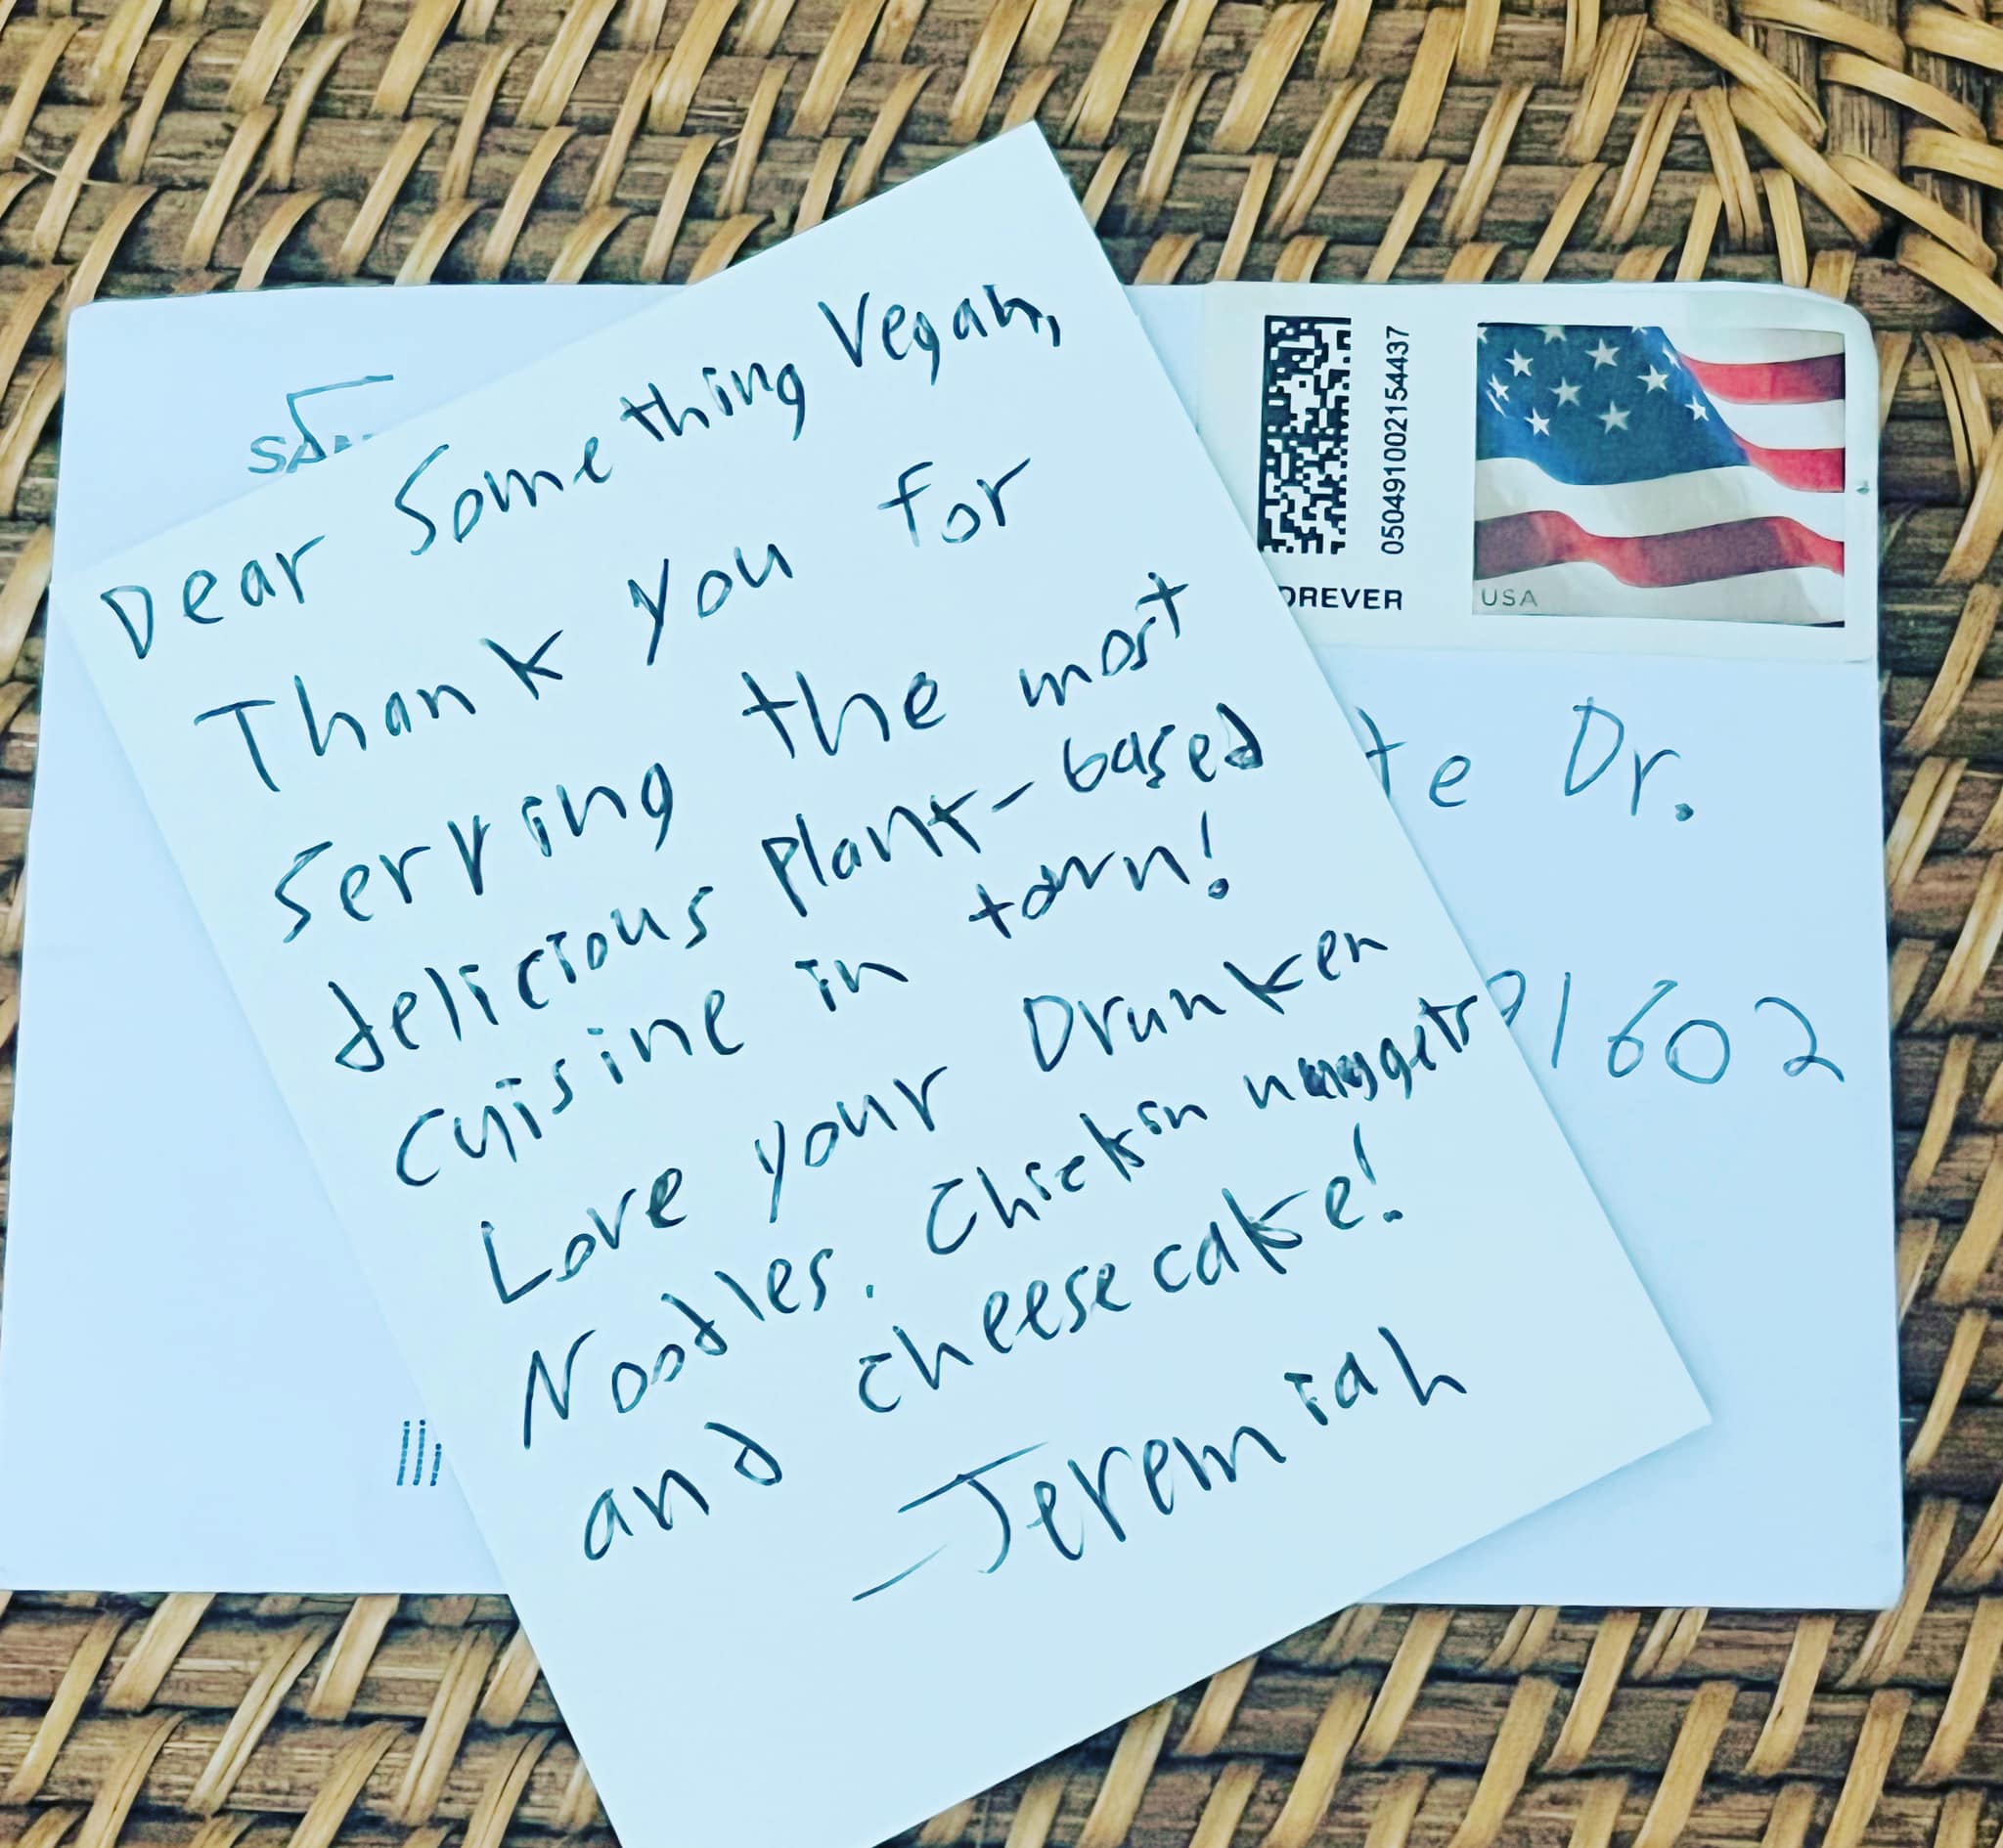 Dear Something Vegan,
Thank you for
serving the most
delicious plant-based
cuisine in town!
Love your Drunken
Noodles. Chickin nuggets
and cheesecake!
-Jeremiah
0504910022154437
USA
Dr.
91602